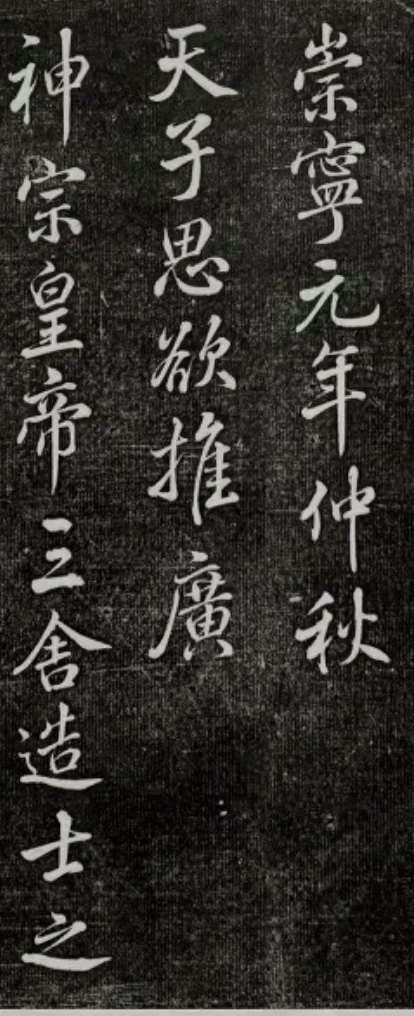 崇寧元年仲秋
天子思欲推廣
神宗皇帝三舍造士之